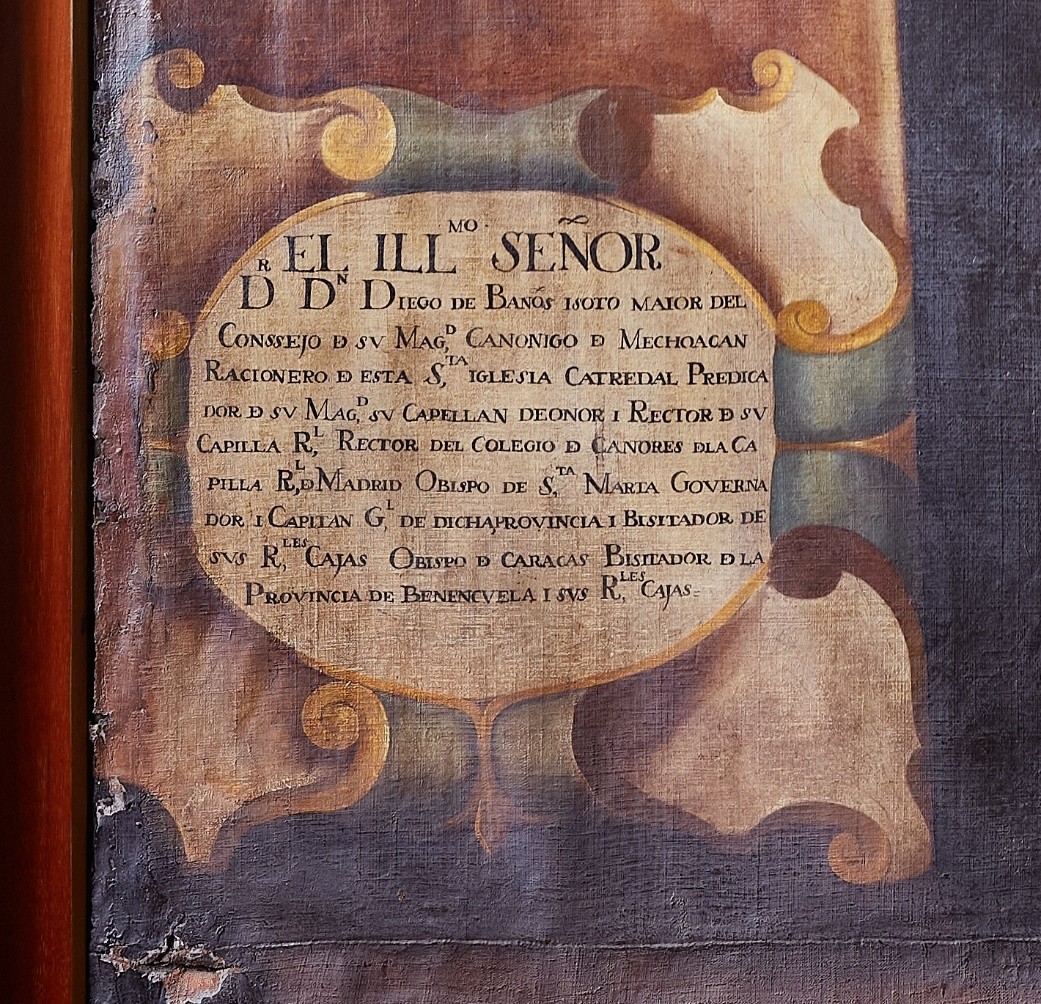 EL ILL^MO. SEÑOR
D^R D^N DIEGO DE BAÑOS ISOTO MAIOR DEL
CONSSEJO Đ SV MAG,^D CANONIGO Đ MECHOACAN
RACIONERO Đ ESTA S,^TA IGLESIA CATREDAL PREDICA
DOR Đ SV MAG,^D SV CAPELLAN DEONOR I RECTOR Đ SV
CAPILLA R,^L RECTOR DEL COLEGIO Đ CANORES DLA CA
PILLA R,^L Đ MADRID OBISPO DE S,^TA MARTA GOVERNA
DOR I CAPITAN G,^L DE DICHA PROVINCIA I BISITADOR DE
SVS R,^LES CAJAS OBISPO Đ CARACAS BISITADOR Đ LA
PROVINCIA DE BENENCVELA I SVS R,^LES CAJAS=